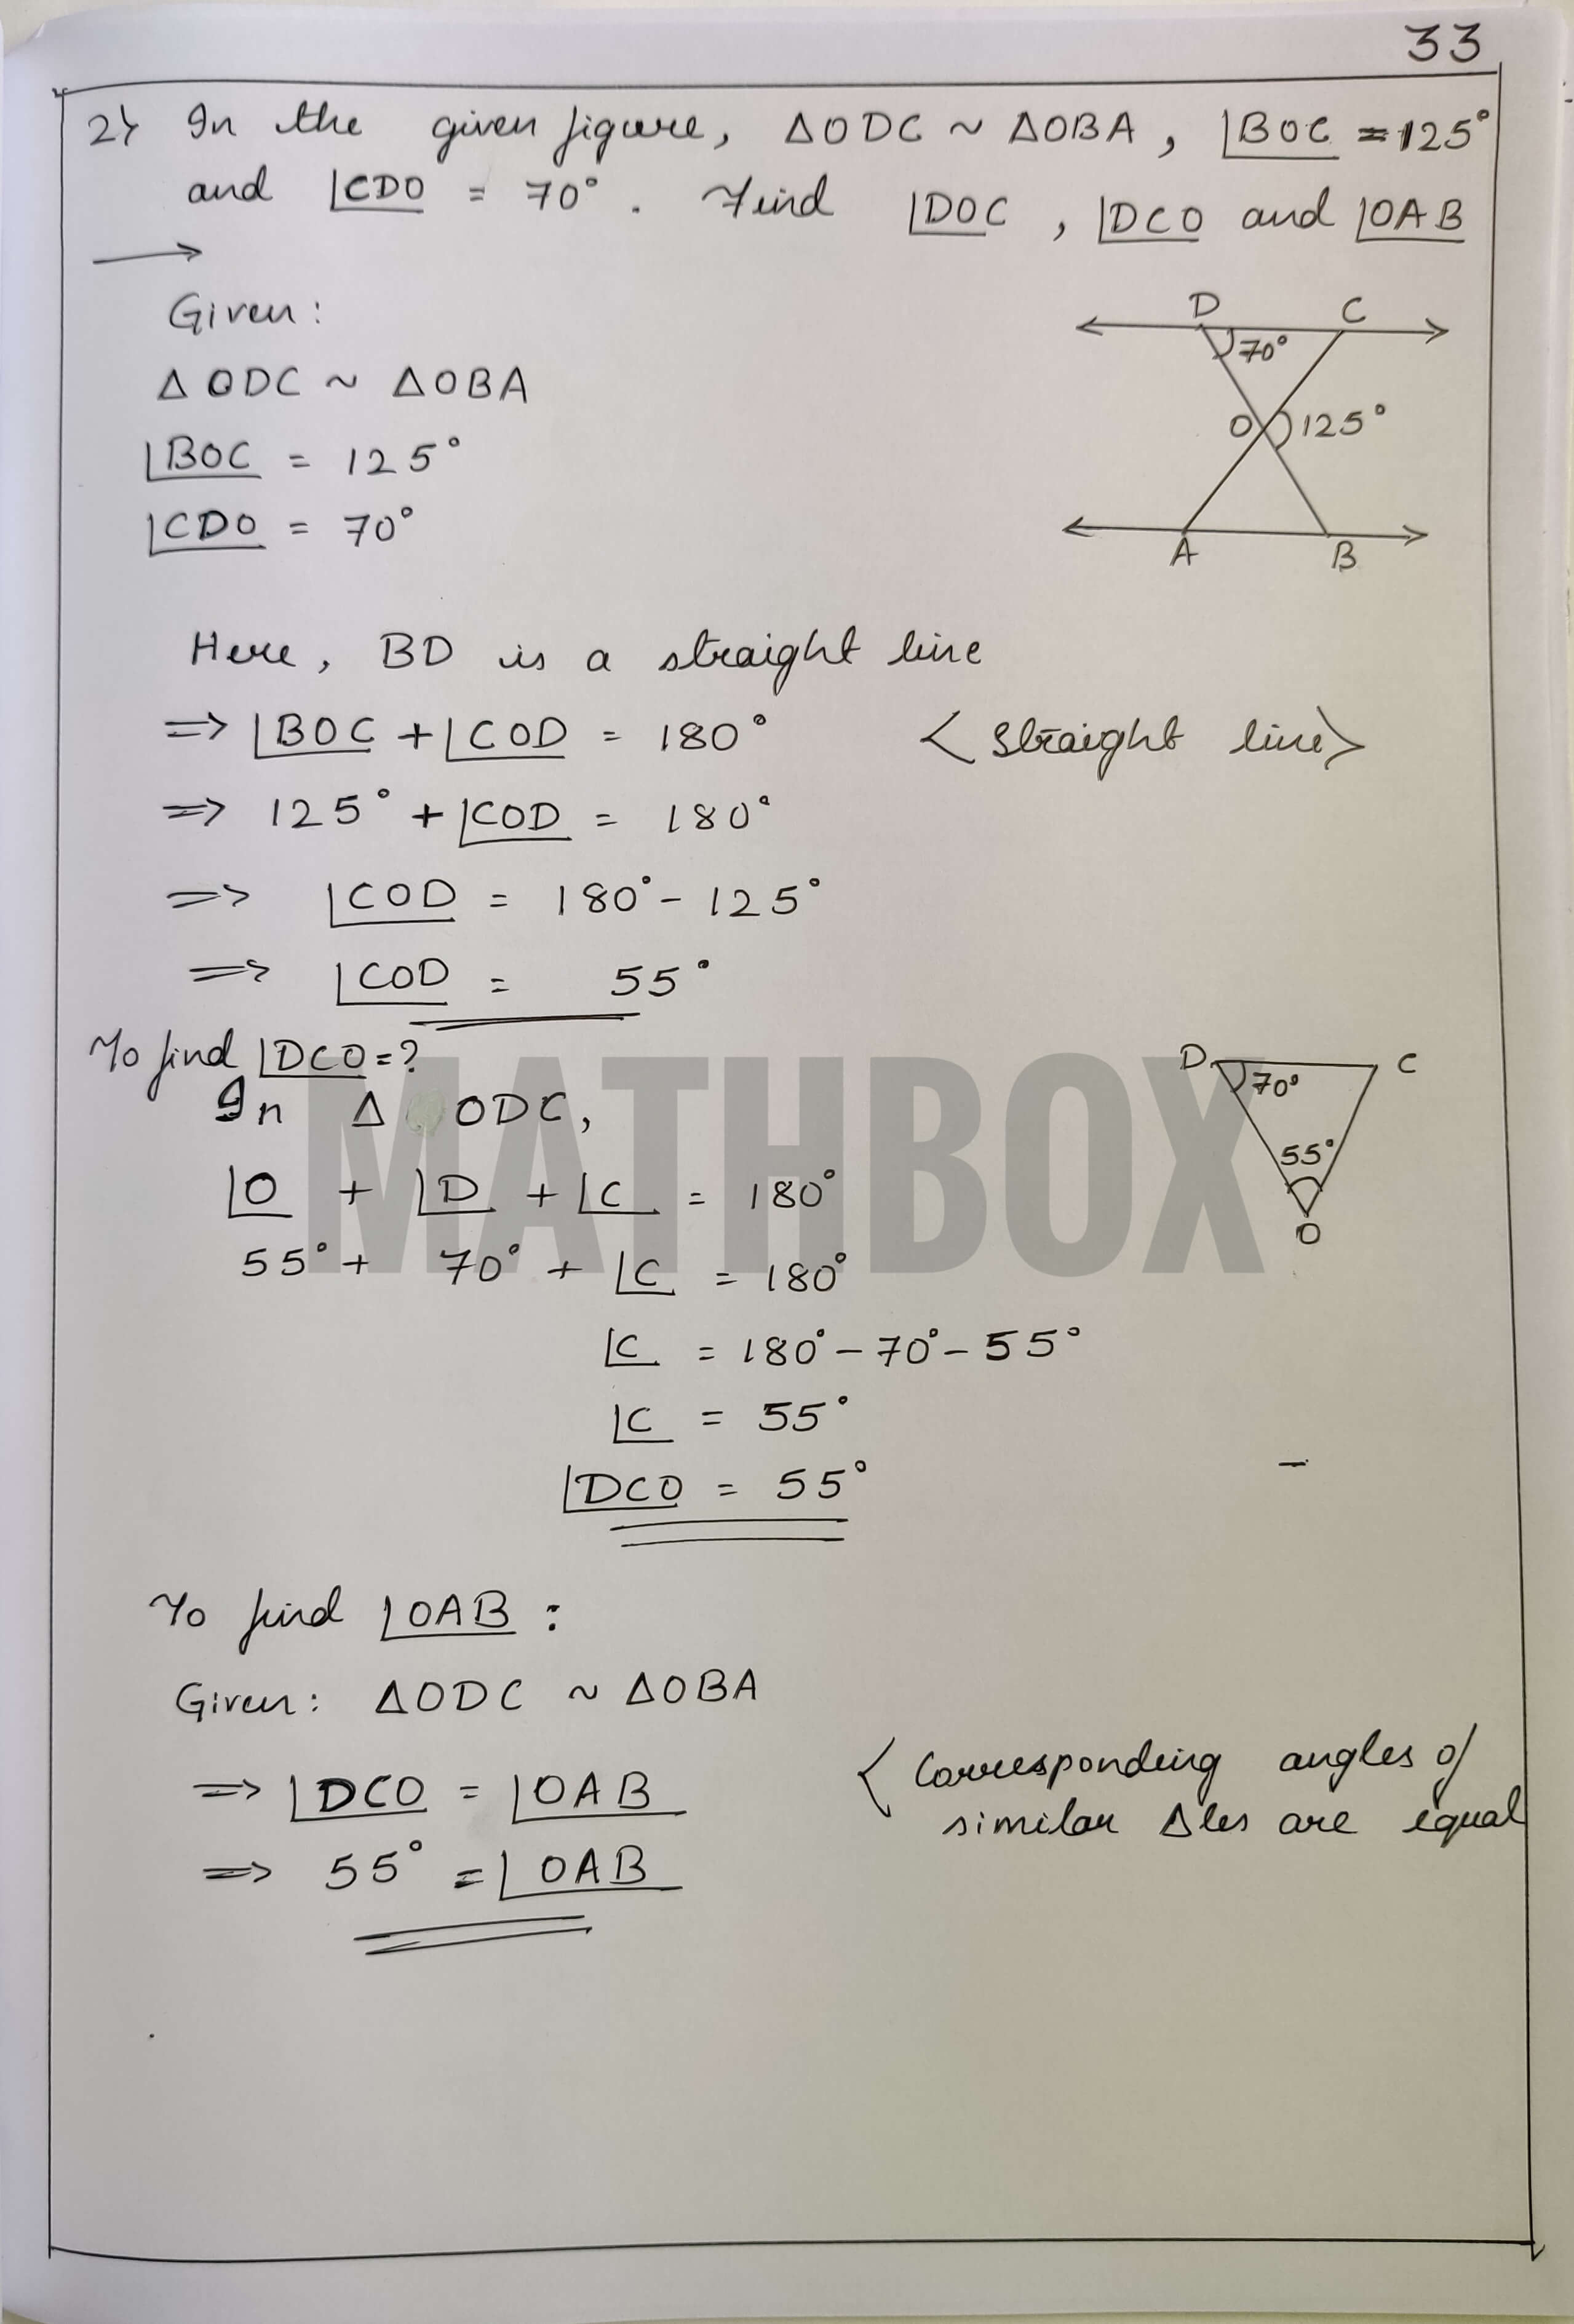 33
2) In the given figure, ΔODC ~ ΔOBA, ∠BOC = 125°
and ∠CDO = 70°. Find ∠DOC, ∠DCO and ∠OAB
→
Given:
ΔODC ~ ΔOBA
∠BOC = 125°
∠CDO = 70°
D C
70°
O 125°
A B
Here, BD is a straight line
⇒ ∠BOC + ∠COD = 180° <straight line>
⇒ 125° + ∠COD = 180°
⇒ ∠COD = 180° - 125°
⇒ ∠COD = 55°
To find ∠DCO = ?
In Δ ODC,
D C
70°
55°
O
∠O + ∠D + ∠C = 180°
55° + 70° + ∠C = 180°
∠C = 180° - 70° - 55°
∠C = 55°
∠DCO = 55°
MATHBOX
To find ∠OAB :
Given: ΔODC ~ ΔOBA
⇒ ∠DCO = ∠OAB < Corresponding angles of
similar Δles are equal
⇒ 55° = ∠OAB